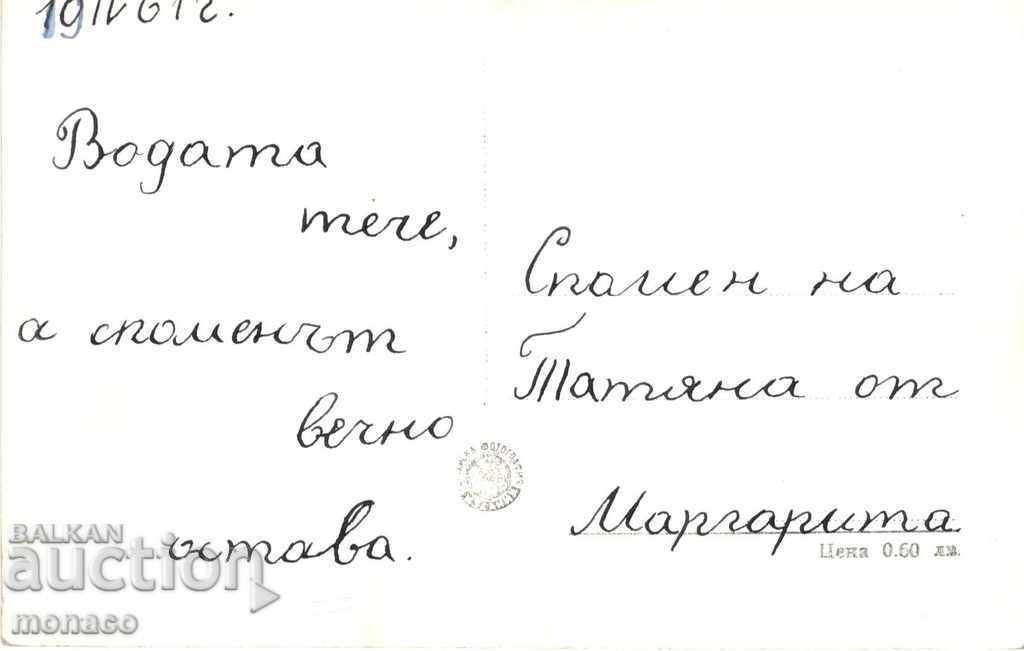 19 IV 61 г.
Водата
тече,
а споменът
вечно
остава.
Спомен на
Татяна от
Маргарита
Цена 0.60 лв.
BALKAN
auction
monaco